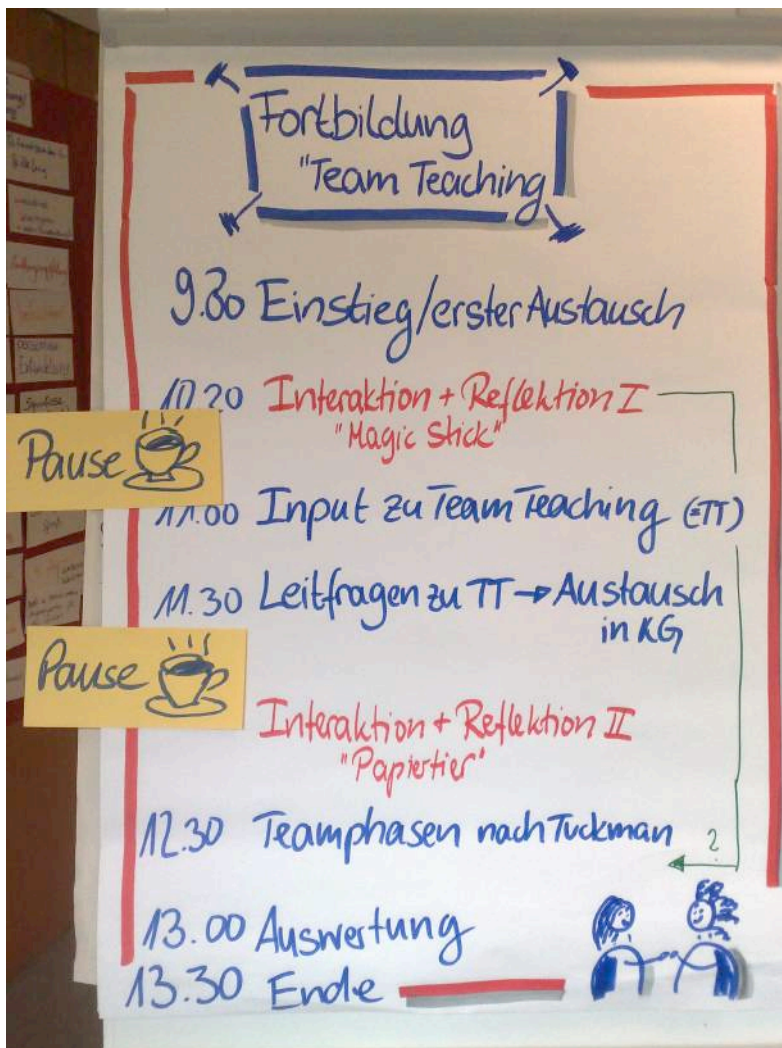 Fortbildung
"Team Teaching
9.30 Einstieg/erster Austausch
10.20 Interaktion + Reflektion I
"Magic Stick"
Pause
11.00 Input zu Team Teaching (=TT)
11.30 Leitfragen zu TT → Austausch
in KG
Pause
Interaktion + Reflektion II
"Papiertier"
12.30 Teamphasen nach Tuckman
?
13.00 Auswertung
13.30 Ende